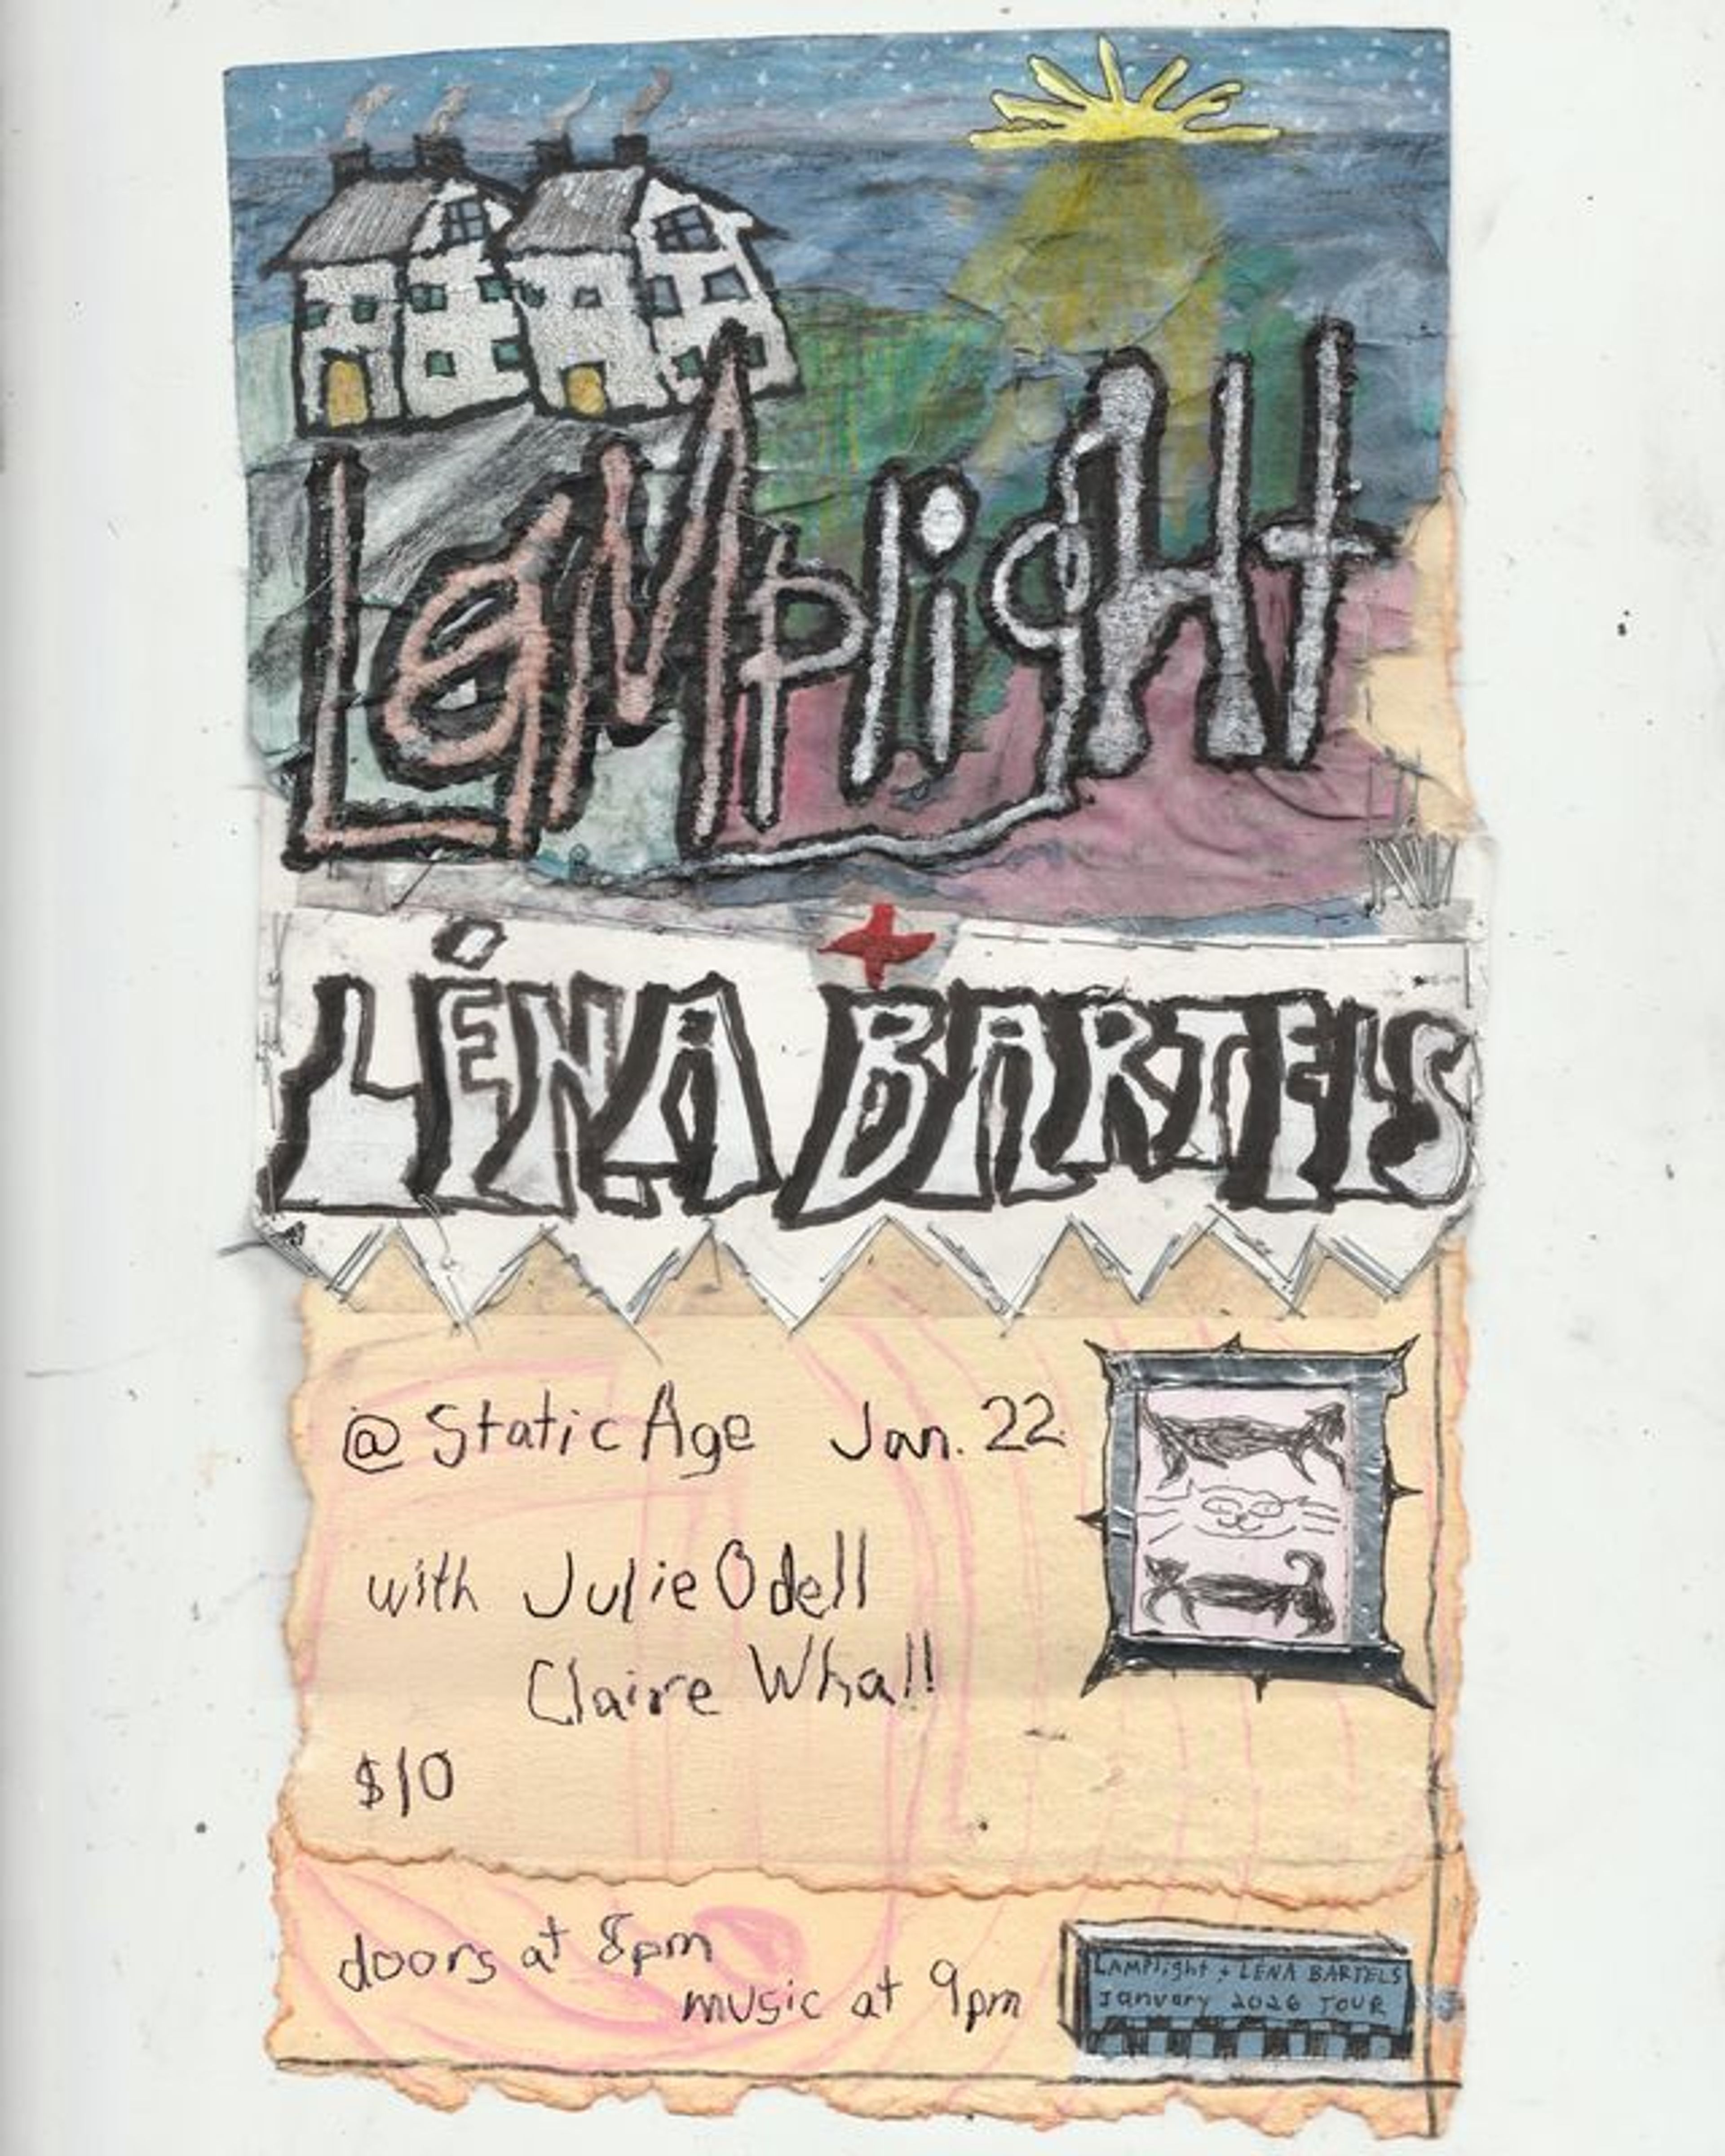 LaMpligHt
+
LĖNA BARTELS
@ Static Age Jan. 22
with Julie Odell
Claire Wha!!
$10
doors at 8pm
music at 9pm
LAMPlight + LĖNA BARTELS
January 2026 TOUR